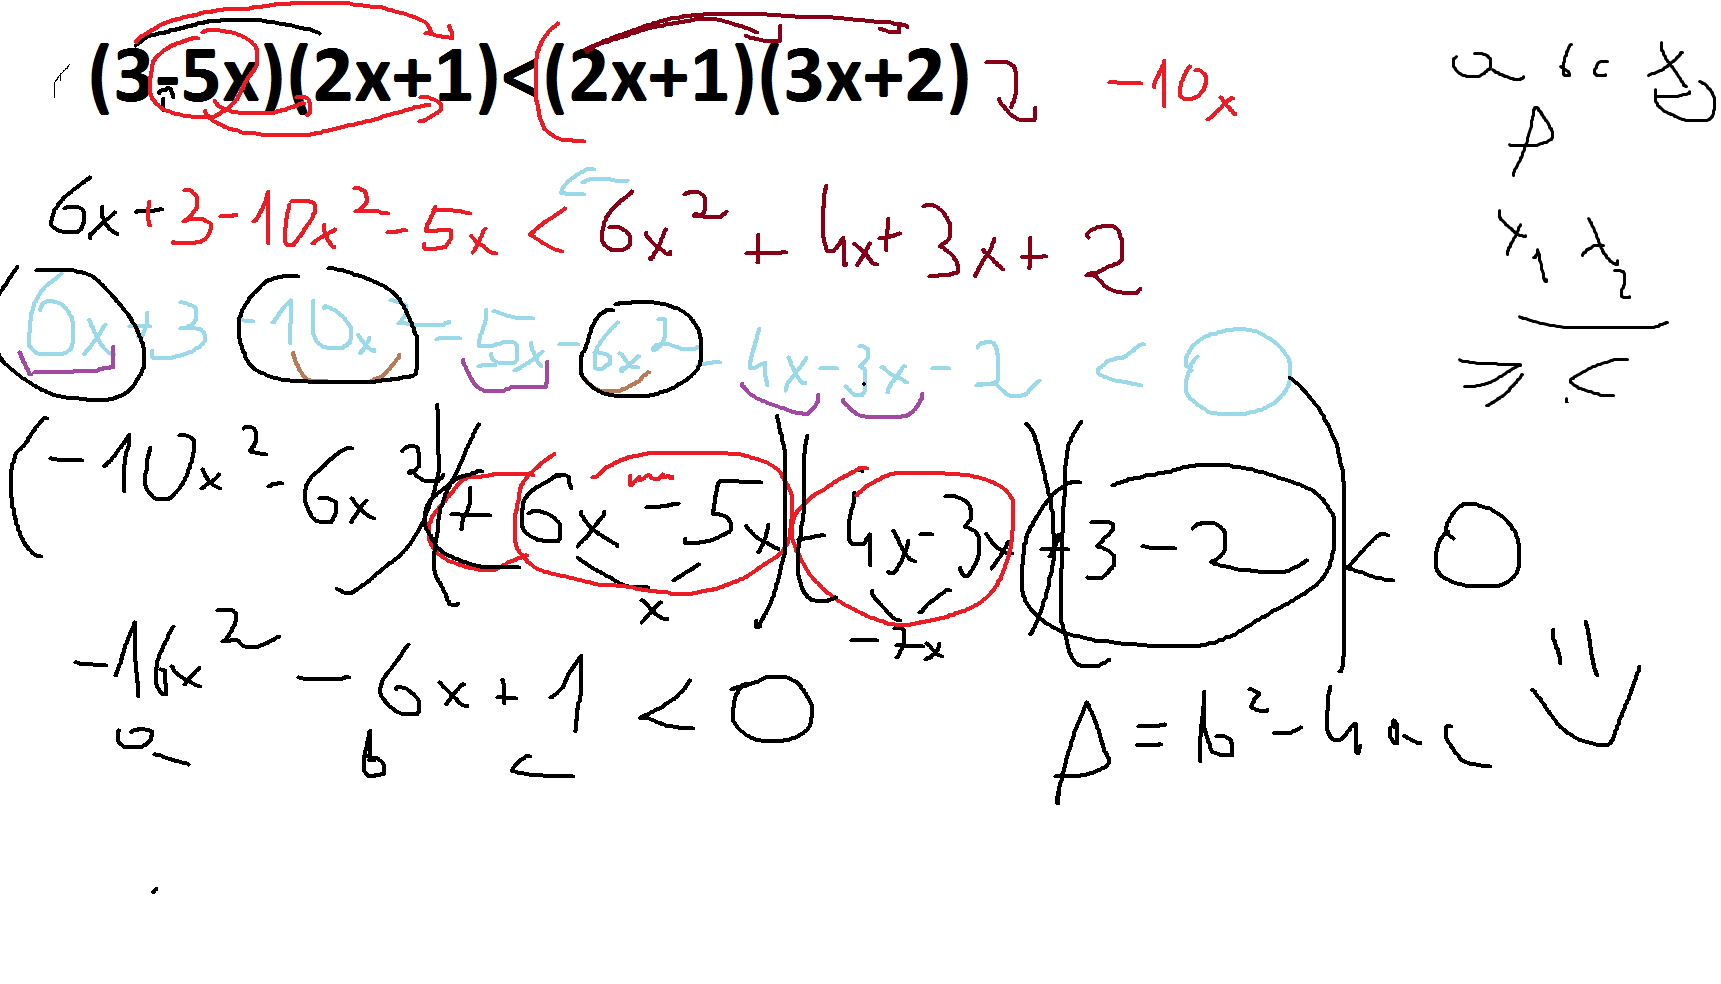 (3-5x)(2x+1)<(2x+1)(3x+2)
-10x
a b c x
Δ
6x+3-10x²-5x < 6x² + 4x+3x+2
x₁ x₂
6x+3-10x²-5x-6x²-4x-3x-2 < 0
> <
(-10x²-6x²)(+6x-5x)(-4x-3x)(+3-2) < 0
x
-7x
-16x² - 6x + 1 < 0
a b c
Δ = b² - 4ac